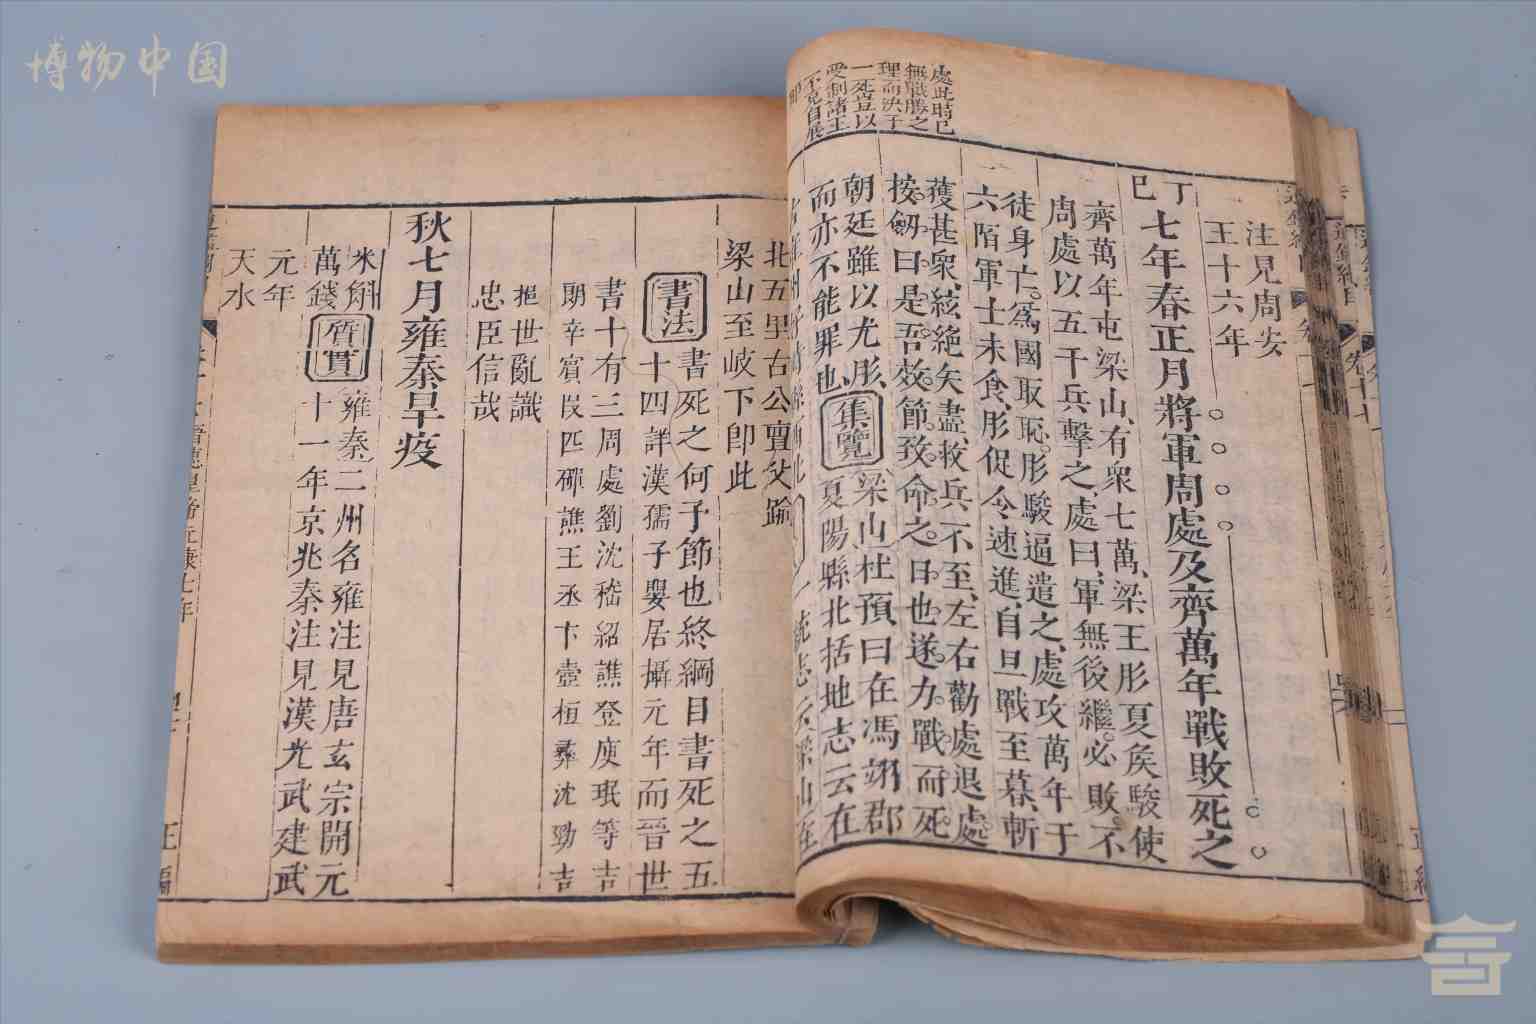 博物中国
處此時已
無戰勝之
理而決于
一死豈以
受制諸王
不克自展
注見周安
王十六年
丁巳
七年春正月將軍周處及齊萬年戰敗死之
齊萬年屯梁山有衆七萬梁王肜夏矦駿使
周處以五千兵擊之處曰軍無後繼必敗不
徒身亡爲國取恥肜駿逼遣之處攻萬年于
六陌軍士未食肜促令速進自旦戰至暮斬
獲甚衆絃絶矢盡救兵不至左右勸處退處
按劒曰是吾效節致命之日也遂力戰而死
朝廷雖以尤肜
而亦不能罪也
集覽
梁山杜預曰在馮翊郡
夏陽縣北括地志云在
北五里古公亶父踰
梁山至岐下卽此
書法
書死之何予節也終綱目書死之五
十四詳漢孺子嬰居攝元年而晉世
書十有三周處劉沈嵇紹譙登庾珉等吉
朗辛賓段匹磾譙王丞卞壼桓彞沈勁吉
挹世亂識
忠臣信哉
秋七月雍秦旱疫
米斛
萬錢
質實
雍秦二州名雍注見唐玄宗開元
十一年京兆秦注見漢光武建武
元年
天水